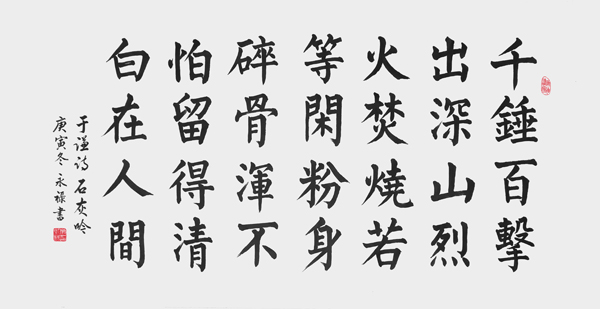 千錘百擊
出深山烈
火焚燒若
等閑粉身
碎骨渾不
怕留得清
白在人間
于谦诗石灰吟
庚寅冬永禄書